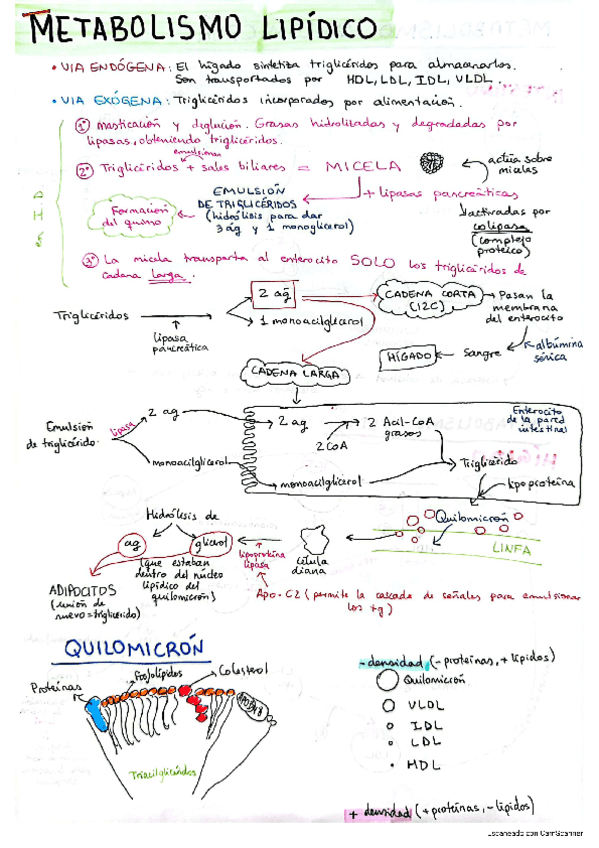 METABOLISMO LIPÍDICO
• VIA ENDÓGENA: El hígado sintetiza triglicéridos para almacenarlos.
Son transportados por HDL, LDL, IDL, VLDL.
• VIA EXÓGENA: Triglicéridos incorporados por alimentación.
en ID
1º Masticación y deglución. Grasas hidrolizadas y degradadas por
lipasas, obteniendo triglicéridos.
emulsiona
2º Triglicéridos + sales biliares = MICELA
actúa sobre
micelas
+ lipasas pancreáticas
EMULSIÓN
DE TRIGLICÉRIDOS
(hidrólisis para dar
3 ág y 1 monoglicerol)
Formación
del quimo
activadas por
colipasa
(complejo
proteico)
3º La micela transporta al enterocito SOLO los triglicéridos de
cadena larga.
Triglicéridos
lipasa
pancreática
2 ag
1 monoacilglicerol
CADENA CORTA
(12C)
Pasan la
membrana
del enterocito
albúmina
sérica
Sangre
HÍGADO
CADENA LARGA
Emulsión
de triglicérido
lipasa
2 ag
monoacilglicerol
2 ag
2 CoA
2 Acil-CoA
grasos
monoacilglicerol
Triglicérido
Enterocito
de la pared
intestinal
lipoproteína
Quilomicrón
LINFA
célula
diana
lipoproteína
lipasa
Hidrólisis de
ag
glicerol
(que estaban
dentro del núcleo
lipídico del
quilomicrón)
ADIPOCITOS
(unión de
nuevo = triglicérido)
Apo-C2 (permite la cascada de señales para emulsionar
los tg)
QUILOMICRÓN
Proteínas
Fosfolípidos
Colesterol
Triacilglicéridos
- densidad (- proteínas, + lípidos)
Quilomicrón
VLDL
IDL
LDL
HDL
+ densidad (+ proteínas, - lípidos)
Escaneado con CamScanner